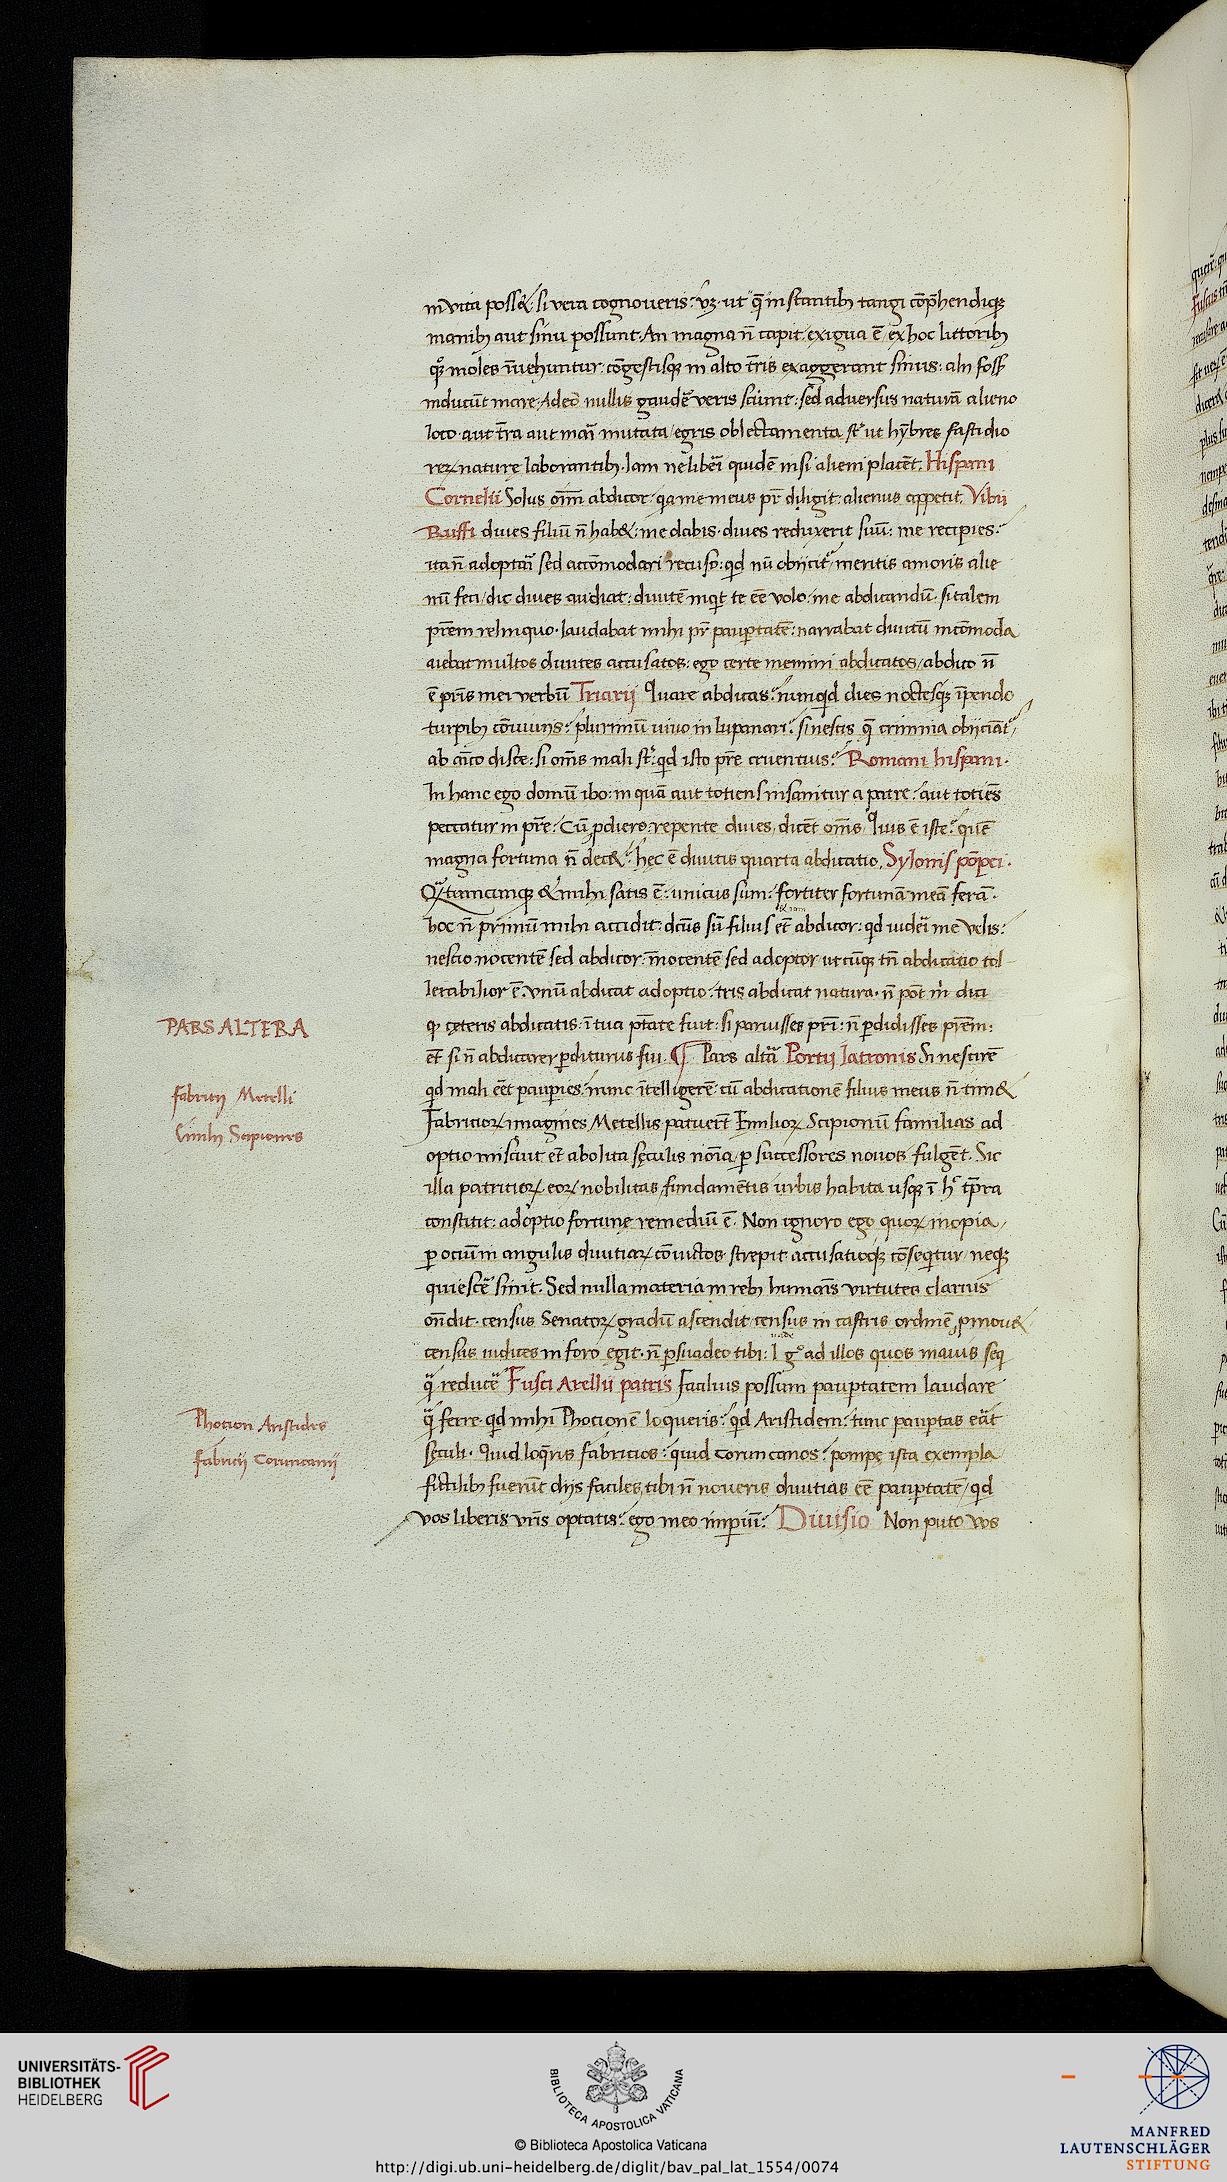 in vita poss&. si vera cognoueris: vꝫ ut q̄ instantibꝫ tangi cōp̄hendiqꝫ
manibꝫ aut sinu possunt. An magna n̄ capit exigua ē, ex hoc littoribꝫ
qꝫ moles īuehuntur. cōgestisqꝫ in alto t̄ris exaggerant sinus: alij foss̄
inducūt mare. Adeo nullis gaudē veris sciūnt: sed adversus naturā alieno
loco aut t̄ra aut marī mutata egris oblectamenta st̄ ut hybres fastidio
reꝝ naturę laborantibꝫ. Iam ne libei quidē nisi alieni placēt. Hispani
Cornelii Solus om̄i abdicor. qa me meus pr̄ diligit: alienus appetit. Vibii
Ruffi diues filiū n̄ hab&: me dabis. diues reduxerit suū: me recipies:
ita n̄ adoptari sed accōmodari recuso: qd nū obiicit, meritis amoris alie
nū feci, dic diues audiat: diuitē inqt te eē volo, me abdicandū. si talem
pr̄em relinquo. laudabat mihi pr̄ paupertatē: narrabat diuitū incōmoda
aiebat multos diuites accusatos: ego certe memini abdicatos, abdico n̄
ē pr̄is mei verbū Triarij Quare abdicas? nunqd dies noctesqꝫ īpendo
turpibꝫ cōuiuijs? plurimū viuo in lupanari? si nescis q̄ crimina obiiciāt,
ab aīco disce: si om̄s mali st̄: qd isto pr̄e cruentius? Romani hispani.
In hanc ego domū ibo: in quā aut totiens insanitur a patre, aut totiēs
peccatur in pr̄e. Cū pdiero repente diues, dicēt om̄s, Quis ē iste? quē
magna fortuna n̄ dec&: hęc ē diuitis quarta abdicatio. Sylonis pōpei.
Qꝫtumcunqꝫ & mihi satis ē: unicus sum: fortiter fortunā meā ferā.
hoc n̄ primū mihi accidit: dctus sū filius et̄ abdicor: qd uiderī me velis:
nescio nocentē sed abdicor: īnocentē sed adoptor utcūqꝫ tn̄ abdicatio tol
lerabilior ē. vnū abdicat adoptio: tris abdicat natura. n̄ pōt m̄ dici
qꝫ cęteris abdicatis: ī tua ptāte fuit. Si paruisses pr̄i: n̄ pdidisses pr̄em:
et̄ si n̄ abdicarer pditurus fui. ¶ Pars altā Portij latronis Si nescirē
qd mali eēt paupies: nunc ītelligerē: cū abdicationē filius meus n̄ tim&
Fabricioꝝ imagines Metellis patuert̄ Emilioꝝ Scipionū familias ad
optio miscuit et̄ abolita sęculis noīa, p successores novos fulgēt. Sic
illa patricioꝝ eoꝝ nobilitas fundamētis urbis habita usqꝫ ī hꝭ tp̄ra
constitit: adoptio fortunę remediū ē. Non ignoro ego quoꝝ inopia,
p ociū in angulis diuitiaꝝ cōuictos strepit accusatioqꝫ cōseqtur, neqꝫ
quiescē sinit. Sed nulla materia in rebꝫ humanīs virtutes clarius
on̄dit. census Senatoꝝ gradū ascendit, census in castris ordinē pmou&
census iudices in foro egit. n̄ psuadeo tibi: l gº ad illos quos mauis seq
q̄ reducē Fusci Arellii patris Facilius possum pauptatem laudare
q̄ ferre. qd mihi Phocionē loqueris? qd Aristidem? tunc pauptas erāt
sęculi. Quid loq̄ris fabricios? quid coruncanos? pompę ista exempla
fictilibꝫ fuerūt dijs faciles, tibi n̄ noueris diuitias eē pauptatē, qd
vos liberis vr̄is optatis? ego meo impiū? Diuisio Non puto vos
PARS ALTERA
Fabricij Metelli
Emilij Scipiones
Phocion Aristides
Fabricij Coruncanij
UNIVERSITÄTS-
BIBLIOTHEK
HEIDELBERG
BIBLIOTECA APOSTOLICA VATICANA
© Biblioteca Apostolica Vaticana
http://digi.ub.uni-heidelberg.de/diglit/bav_pal_lat_1554/0074
MANFRED
LAUTENSCHLÄGER
STIFTUNG